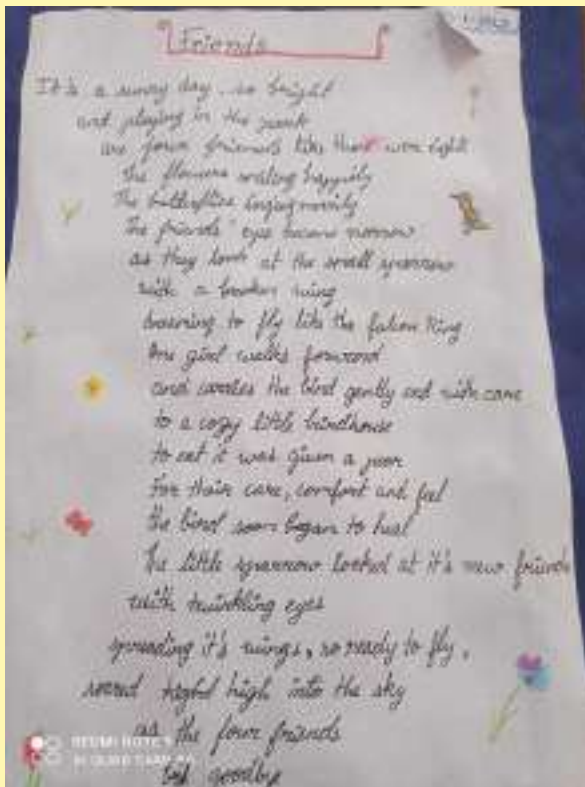 Friends
It's a sunny day so bright
and playing in the park
are four friends like there were eight
The flowers smiling happily
The butterflies singing merrily
The friends' eye became narrow
as they look at the small sparrow
with a broken wing
dreaming to fly like the falcon King
One girl walks forward
and carries the bird gently and with care
to a cozy little birdhouse
to eat it was given a pear
For their care, comfort and feel
the bird soon began to heal
The little sparrow looked at it's new friends
with twinkling eyes
spreading it's wings, so ready to fly,
soared high into the sky
as the four friends
bid goodbye
REDMI NOTE
AI QUAD CAMERA